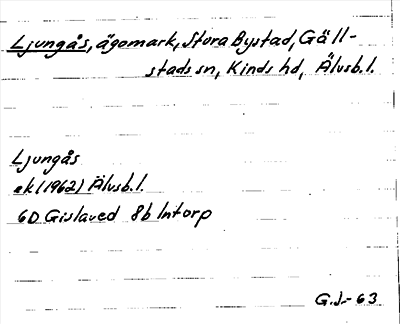 Ljungås, ägomark, Stora Bystad, Gäll-
stads sn, Kinds hd, Älvsb. l.
Ljungås
ek (1962) Älvsb. l.
6D Gislaved 8b Intorp
G.J.-63